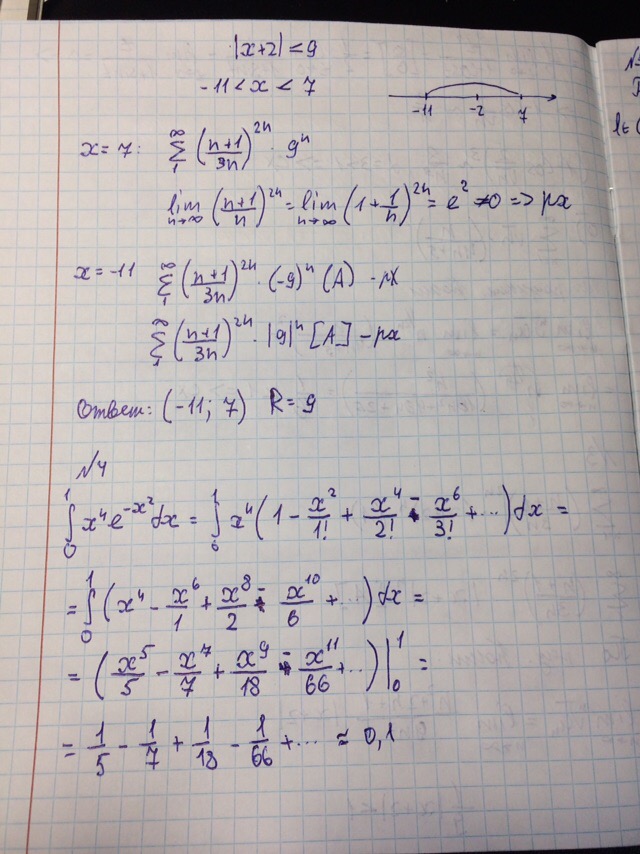 |x+2| < 9
-11 < x < 7
-11 -2 7
x = 7: ∑₁^∞ ((n+1)/(3n))^(2n) · 9^n
lim_(n→∞) ((n+1)/n)^(2n) = lim_(n→∞) (1 + 1/n)^(2n) = e² ≠ 0 => рх
x = -11 ∑₁^∞ ((n+1)/(3n))^(2n) · (-9)^n (A) - рх
∑₁^∞ ((n+1)/(3n))^(2n) · |9|^n [A] - рх
Ответ: (-11; 7) R = 9
№4
∫₀¹ x⁴e^(-x²)dx = ∫₀¹ x⁴(1 - x²/1! + x⁴/2! - x⁶/3! + ...)dx =
= ∫₀¹ (x⁴ - x⁶/1 + x⁸/2 - x¹⁰/6 + ...)dx =
= (x⁵/5 - x⁷/7 + x⁹/18 - x¹¹/66 + ...)|₀¹ =
= 1/5 - 1/7 + 1/18 - 1/66 + ... ≈ 0,1